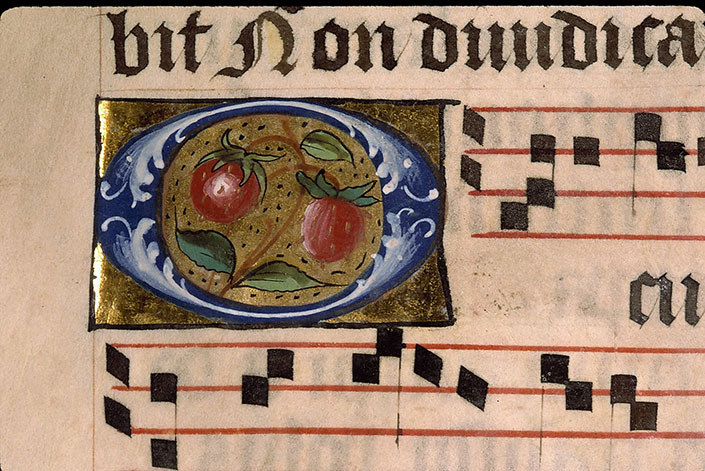 bit Non diiudica
O
cu